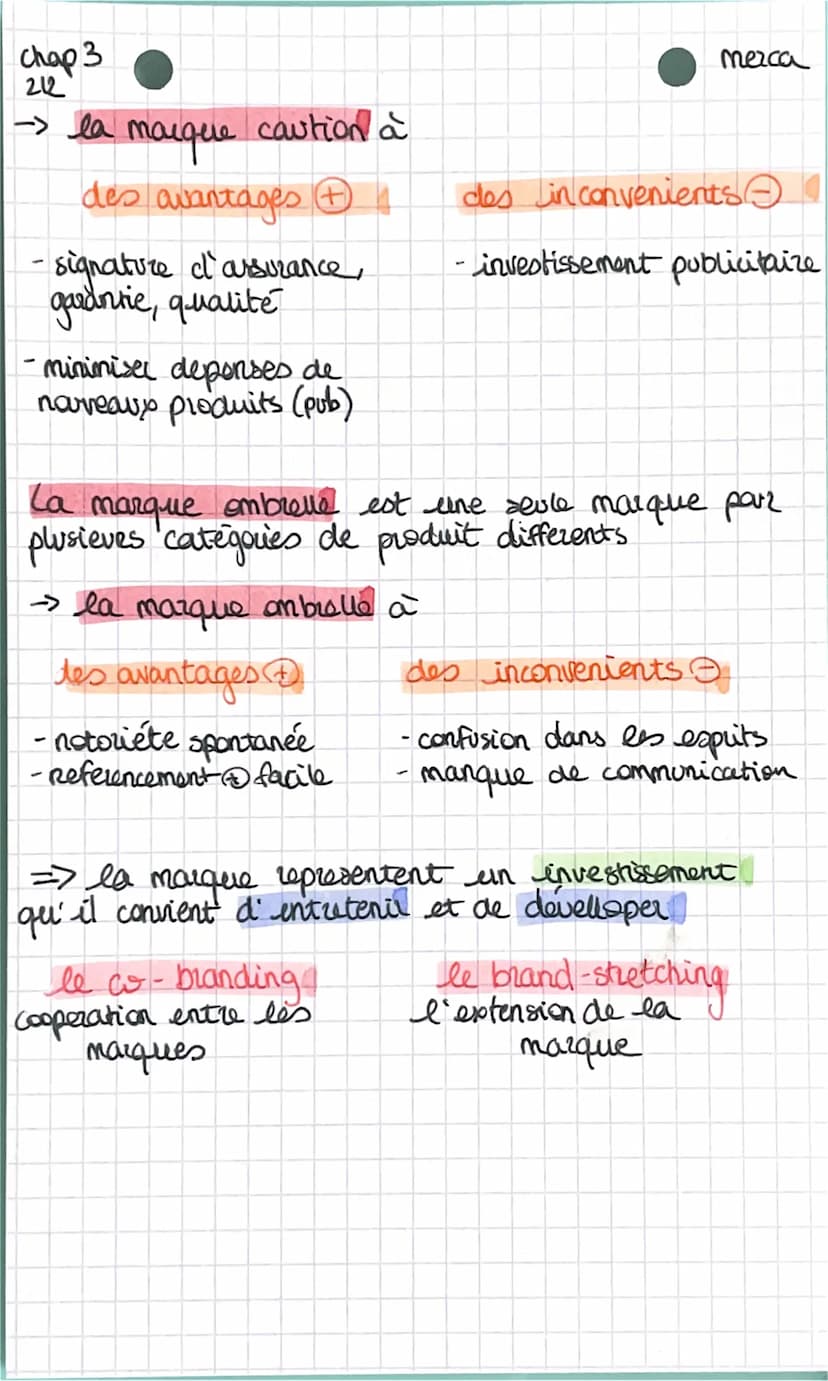 chap 3
2/2
merca
-> la marque caution à
des avantages (+)
des inconvenients (-)
- signature d'assurance,
garantie, qualité
- minimiser depenses de
nouveaux produits (pub)
- investissement publicitaire
La marque ombrelle est une seule marque pour
plusieurs catégories de produit differents
-> la marque ombrelle à
des avantages (+)
des inconvenients (-)
- notoriéte spontanée
- referencement (+) facile
- confusion dans les esprits
- manque de communication
=> la marque representent un investissement
qu'il convient d'entretenir et de développer
le co-branding
cooperation entre les
marques
le brand-stretching
l'extension de la
marque